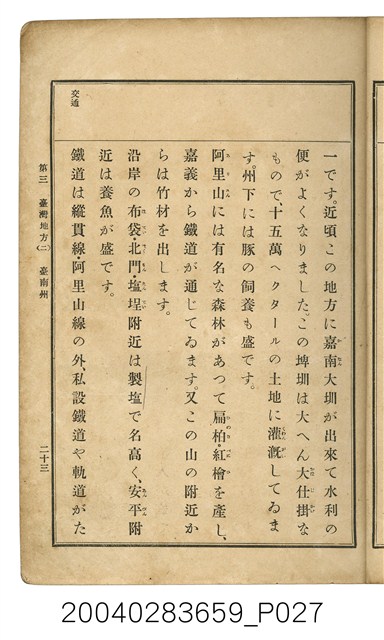 交通
一です。近頃この地方に嘉南大圳が出來て水利の
便がよくなりました。この埤圳は大へん大仕掛な
もので、十五萬ヘクタールの土地に灌漑してゐま
す。州下には豚の飼養も盛です。
阿里山には有名な森林があつて扁柏・紅檜を產し、
嘉義から鐵道が通じてゐます。又この山の附近か
らは竹材を出します。
沿岸の布袋・北門・塩埕附近は製塩で名高く、安平附
近は養魚が盛です。
鐵道は縱貫線・阿里山線の外、私設鐵道や軌道がた
第三 臺灣地方(二) 臺南州
二十三
20040283659_P027